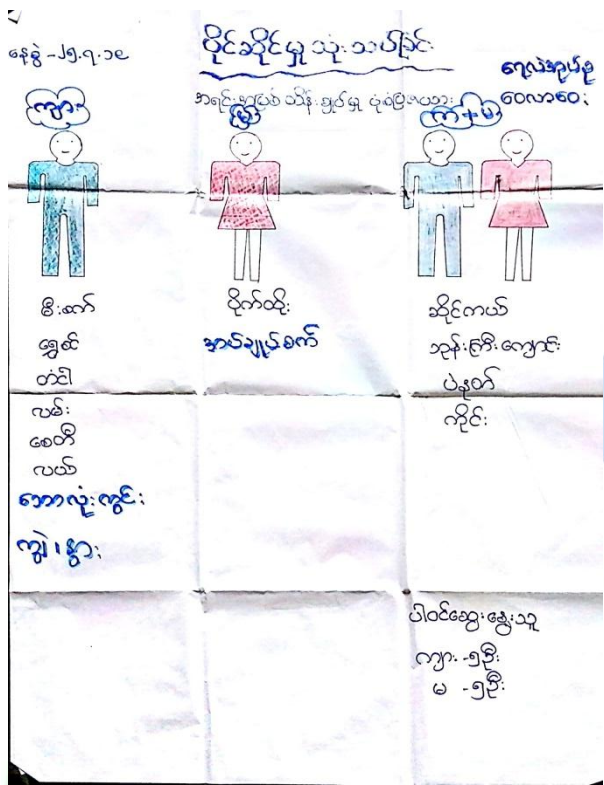 နေ့စွဲ -၂၅.၇.၁၉
ပိုင်ဆိုင်မှု သုံးသပ်ခြင်း
ဝေလာဝေး
အရင်းအမြစ် ထိန်းချုပ်မှု ပုံစံပြဇယား
ကျား
မ
ကျား + မ
မီးစက်
ရွှေစင်
တံငါ
လမ်း
စေတီ
လယ်
ဘောလုံးကွင်း
ကျွဲ၊ နွား
ပိုက်ထိုး
အပ်ချုပ်စက်
ဆိုင်ကယ်
ဘုန်းကြီးကျောင်း
ပဲနုတ်
ကိုင်း
ပါဝင်ဆွေးနွေးသူ
ကျား -၅ဦး
မ -၅ဦး